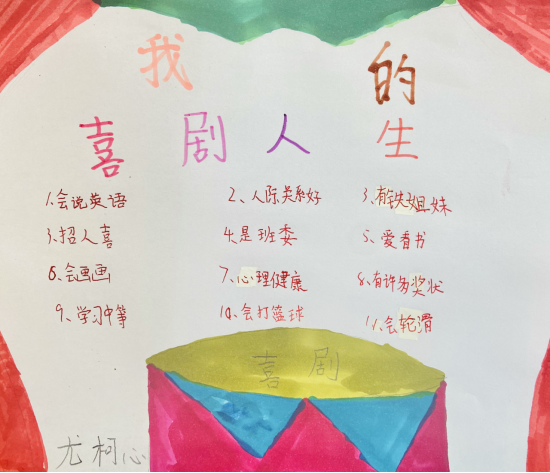 我的
喜剧人生
1.会说英语 2、人际关系好 3、有铁姐妹
3.招人喜 4.是班委 5、爱看书
6、会画画 7、心理健康 8、有许多奖状
9、学习中等 10、会打篮球 11、会轮滑
喜剧
尤柯心